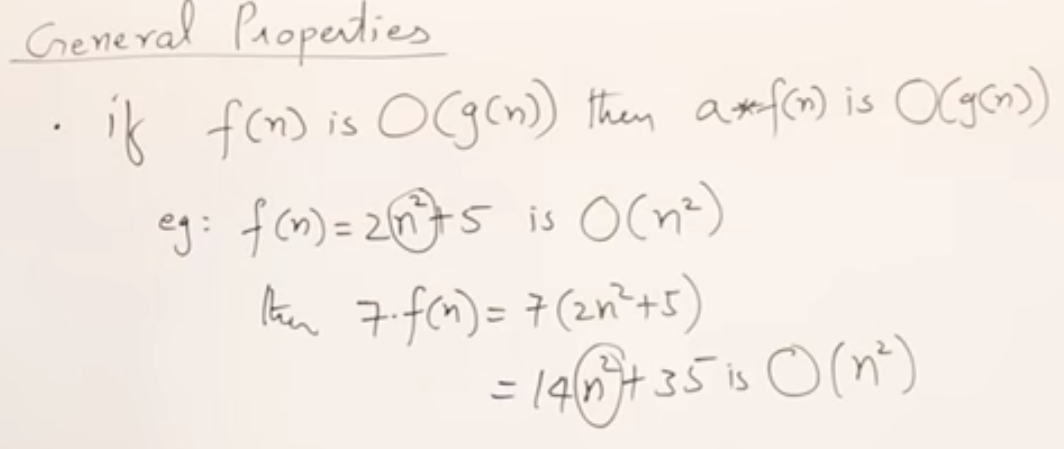 General Properties
· if f(n) is O(g(n)) then a*f(n) is O(g(n))
eg: f(n) = 2n²+5 is O(n²)
then 7·f(n) = 7(2n²+5)
= 14n²+35 is O(n²)